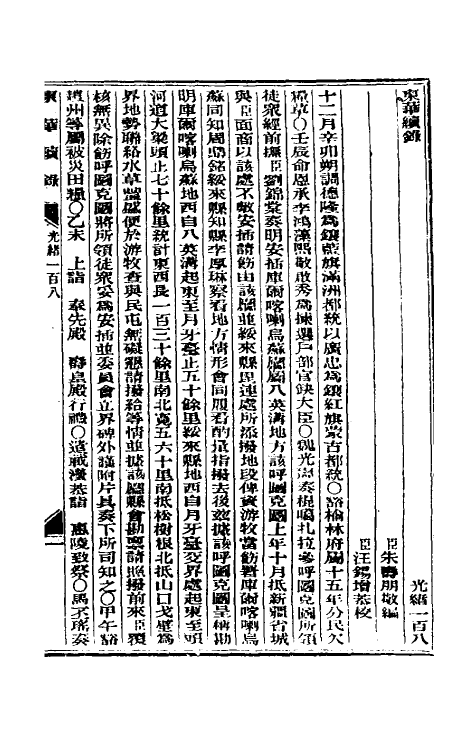 東華續錄
光緒一百八
臣朱壽朋敬編
臣汪錫增恭校
十二月辛卯朔調德隆為鑲藍旗滿洲都統以廣忠為鑲紅旗蒙古都統〇豁榆林府屬十五年分民欠
糧草〇壬辰命盧承李鴻藻熙敬敢秀為揀選戶部官缺大臣〇魏光燾奏棍噶扎拉參呼圖克圖所領
徒眾經前撫臣劉錦棠奏明安插庫爾喀喇烏蘇廳屬八英溝地方該呼圖克圖上年十月抵新疆省城
與臣面商以該處不敷安插請飭由該廳並綏來縣毘連處所添撥地段俾資游牧當飭署庫爾喀喇烏
蘇同知周鼎銘綏來縣知縣李原琳察看地方情形會同履看酌量指撥去後茲據該呼圖克圖呈稱勘
明庫爾喀喇烏蘇地西自八英溝起東至月牙臺止五十餘里綏來縣地西自月牙臺交界處起東至頭
河道大梁頭止七十餘里統計東西長一百三十餘里南北寬五六十里南抵松樹根北抵山口戈壁為
界地勢聯絡水草豐盛便於游牧查與民屯無礙懇請撥給等情並據該廳縣會勘繪請照撥前來臣覆
核無異除飭呼圖克圖將所領徒眾妥為安插並委員會立界碑外謹附片具奏下所司知之〇甲午豁
州等屬被災田糧〇乙未 上詣 奉先殿 壽皇殿行禮〇遣載瀅恭詣 惠陵致祭〇馬丕瑤奏
東華續錄 光緒一百八